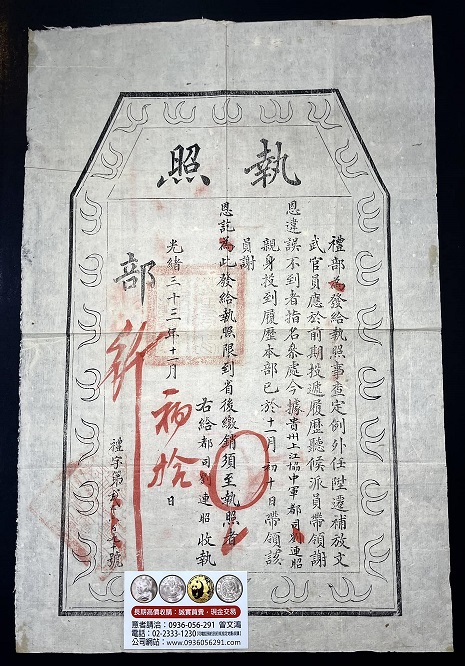 執照
禮部為發給執照事查定例外任陞遷補放文
武官員應於前期投遞履歷聽候派員帶領謝
恩違誤不到者指名參處今據貴州上江協中軍都司劉連昭
親身投到履歷本部已於十一月初十日帶領該
員謝
恩訖為此發給執照限到省後繳銷須至執照者
右給都司劉連昭收執
光緒三十三年十一月初拾日
部
禮字第號
長期高價收購：誠實買賣，現金交易
意者請洽：0936-056-291 曾文鴻
電話：02-2333-1230
公司網站：www.0936056291.com